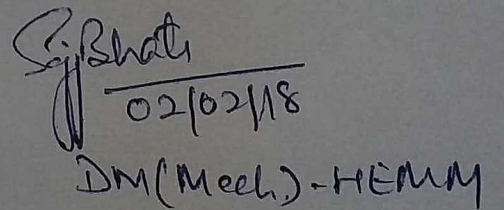 SajBhati
02/02/18
DM(Mech.)-HEMM